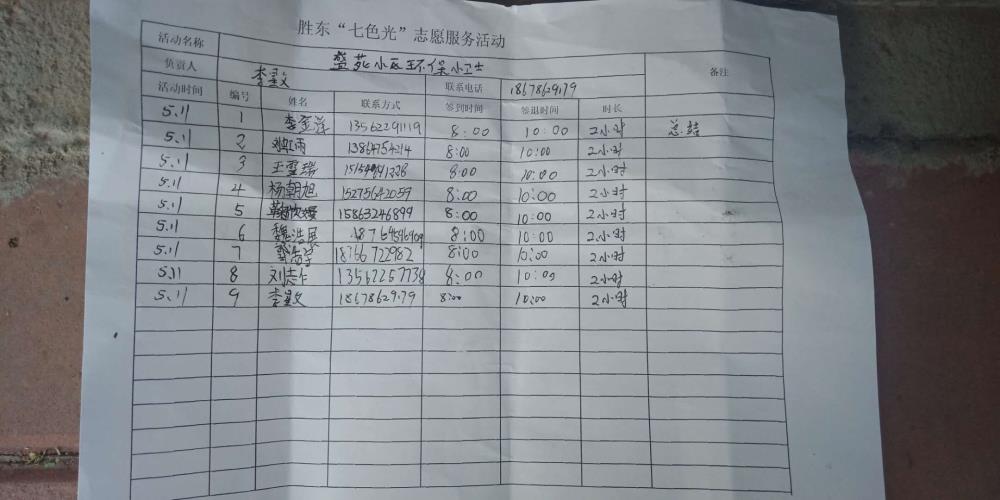 胜东“七色光”志愿服务活动
活动名称 盛苑小区环保小卫士 备注
负责人 李 联系电话 18678629179
活动时间 编号 姓名 联系方式 签到时间 签退时间 时长
5.11 1 李 13562291119 8:00 10:00 2小时 总结
5.11 2 刘虹雨 13864754214 8:00 10:00 2小时
5.11 3 王雪瑞 8:00 10:00 2小时
5.11 4 杨朝旭 15275642059 8:00 10:00 2小时
5.11 5 15863246899 8:00 10:00 2小时
5.11 6 魏浩 8:00 10:00 2小时
5.11 7 18766722982 8:00 10:00 2小时
5.11 8 刘志仁 13562257738 8:00 10:00 2小时
5.11 9 李 18678629179 8:00 10:00 2小时